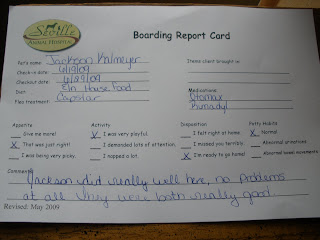 Seville
ANIMAL HOSPITAL
Boarding Report Card
Pet's name Jackson Kalmeyer
Items client brought in:
Check-in date: 6/19/09
Checkout date: 6/29/09
Diet: In House Food
Medications
Flea treatment: Capstar
Otomax
Benadyl
Appetite
Activity
Disposition
Potty Habits
Give me more!
X I was very playful.
I felt right at home.
X Normal
X That was just right!
I demanded lots of attention.
I missed you terribly.
Abnormal urinations
I was being very picky.
I napped a lot.
X I'm ready to go home!
Abnormal bowel movements
Comments:
Jackson did really well here, no problems
at all they were both really good.
Revised: May 2009